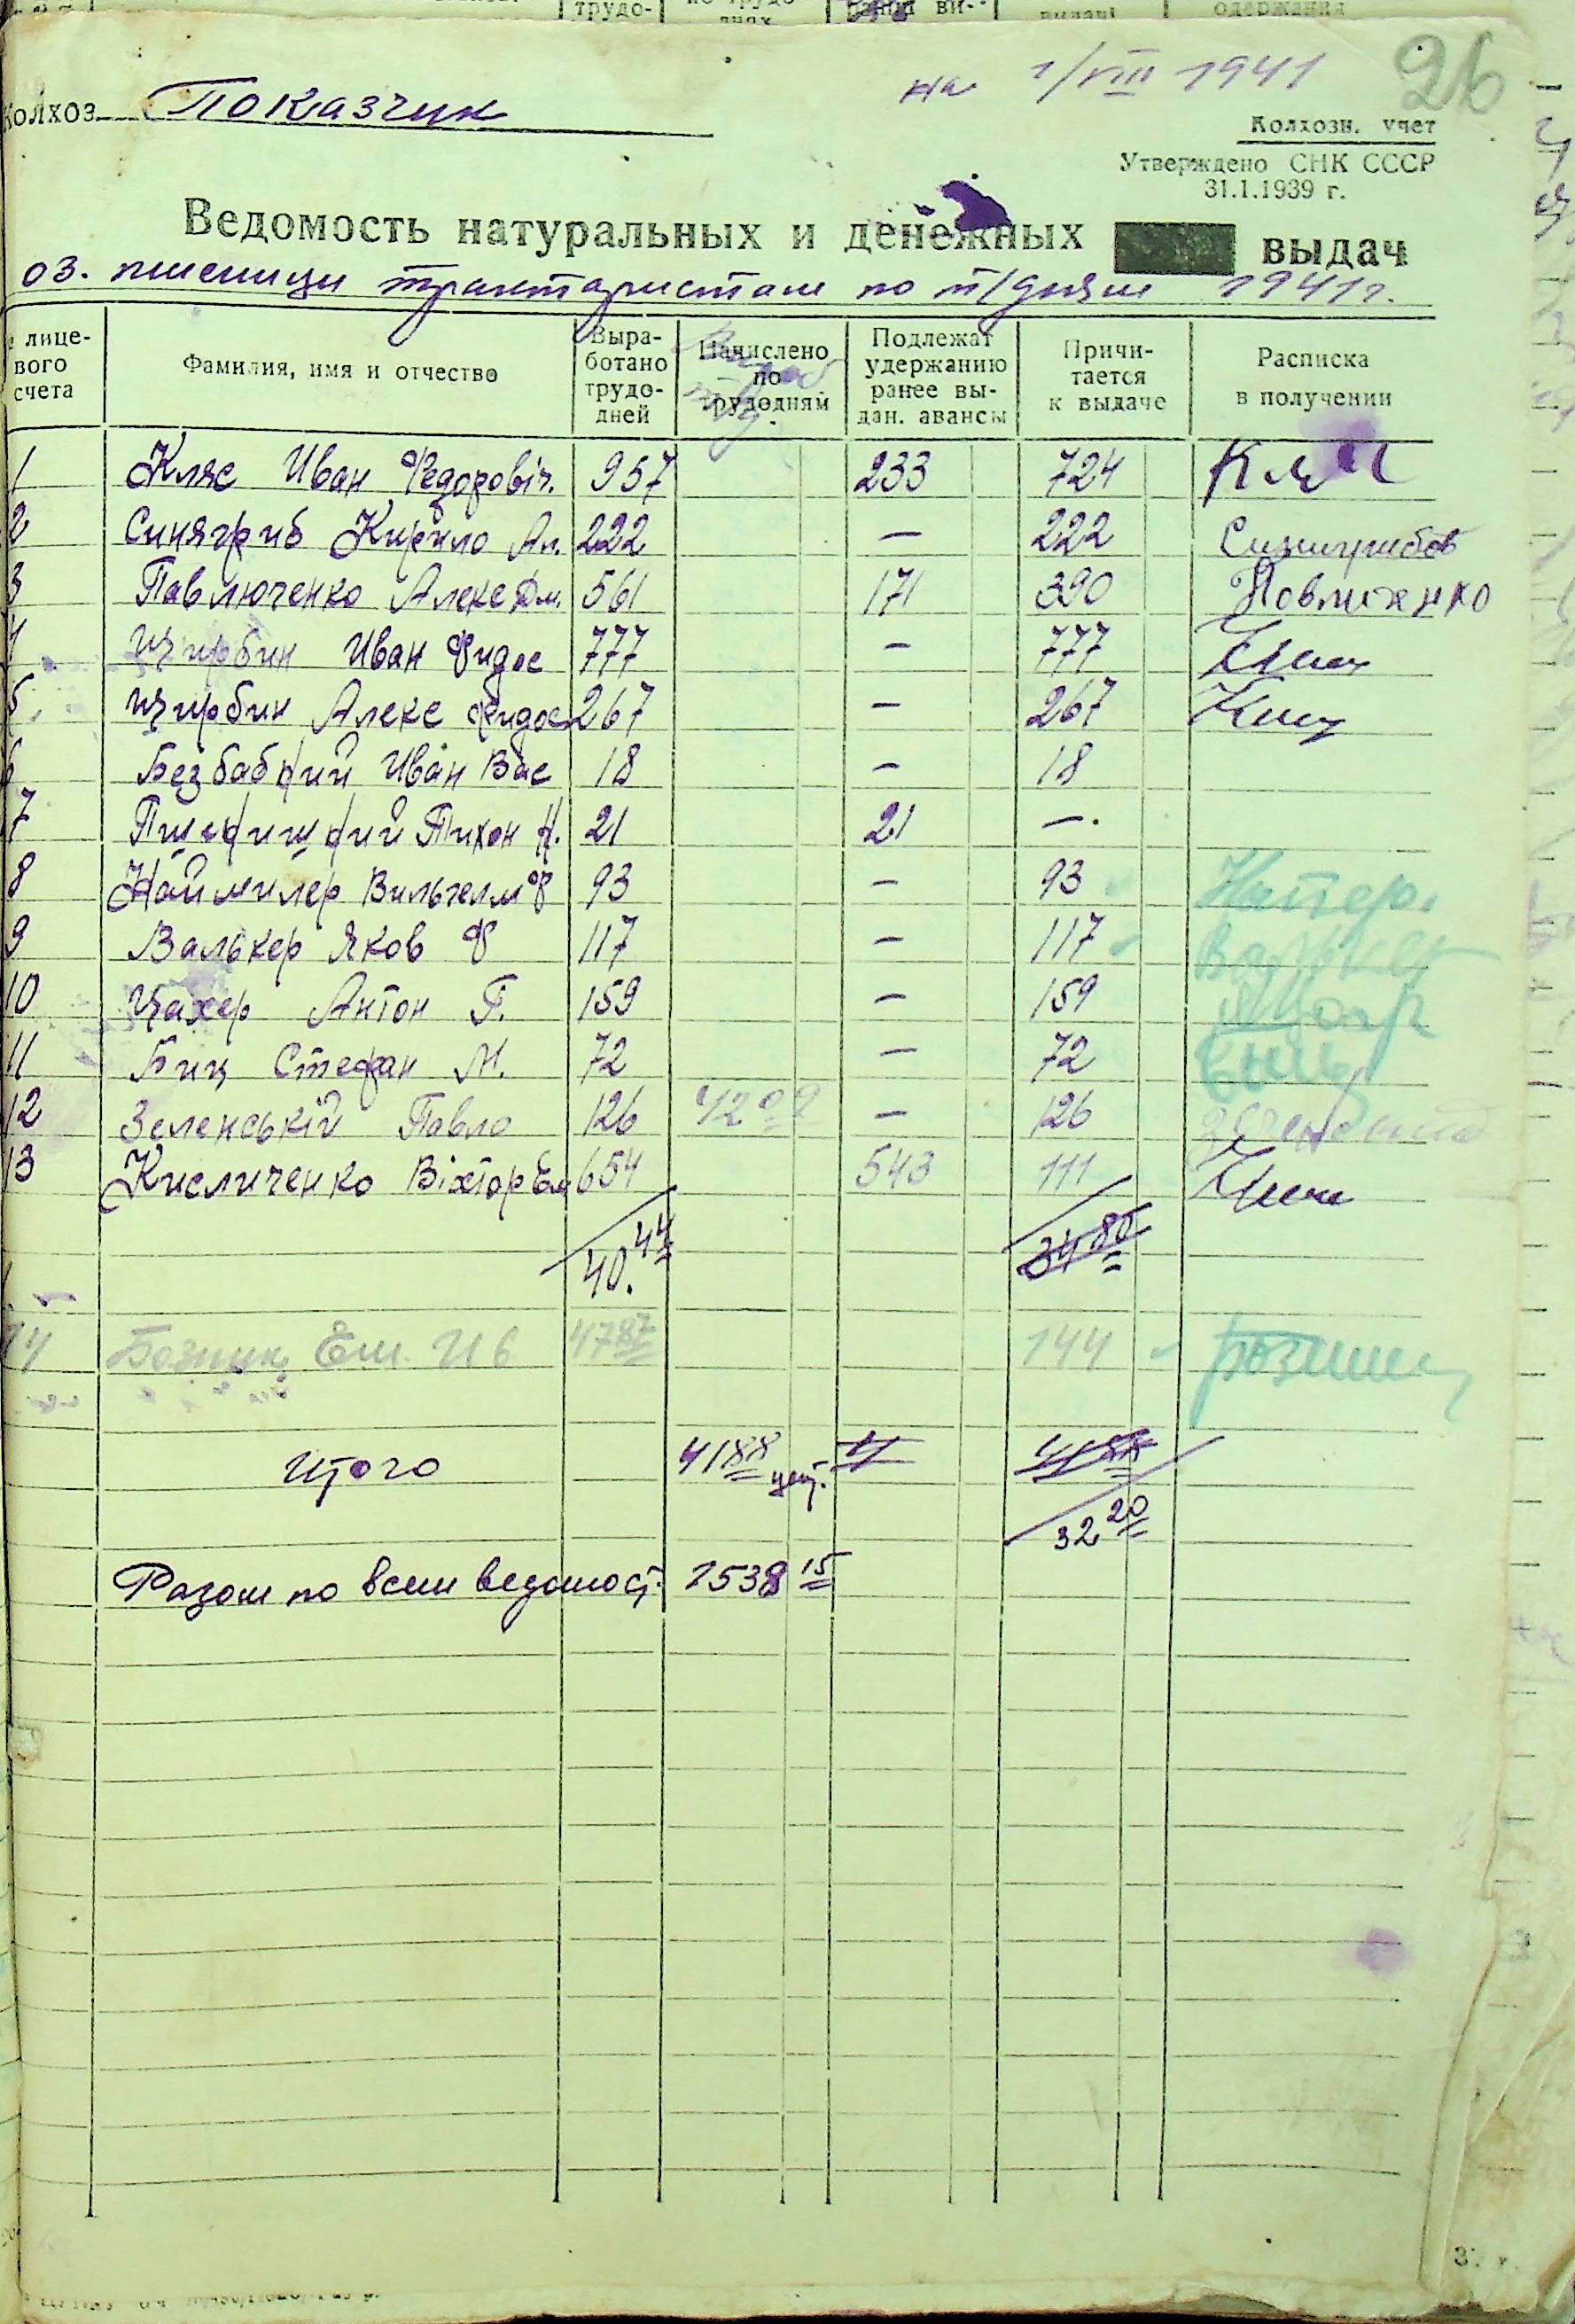 на 1/VIII 1941
26
Колхоз Показчик
Колхозн. учет
Утверждено СНК СССР
31.1.1939 г.
Ведомость натуральных и денежных выдач
оз. пшеници трактористам по т/дням 1941 г.
лице-вого счета Фамилия, имя и отчество Выра-ботано трудо-дней Начислено по трудодням Подлежат удержанию ранее вы-дан. авансы Причи-тается к выдаче Расписка в получении
1 Кляс Иван Федоровіч. 957 233 724
2 Синягриб Кирило Ал. 222 — 222
3 Павлюченко Алекс Дм. 561 171 390
4 Щирбин Иван Фидос 777 — 777
5 Щирбин Алекс Фидос 267 — 267
6 Безбабний Иван Вас 18 — 18
7 Тихон Н. 21 21 —.
8 Наймилер Вильгелм Ф 93 — 93
9 Валькер Яков Ф 117 — 117 Валькер
10 Цахер Антон Г. 159 — 159
11 Биц Стефан М. 72 — 72
12 Зеленській Павло 126 42 02 — 126
13 Кисличенко Віктор Ем 654 543 111
40.44 34 80
14 Ем. Ив 47 87 144
Итого 41 88 цент. 41 88
32 20
Разом по всем ведомост. 1538 15